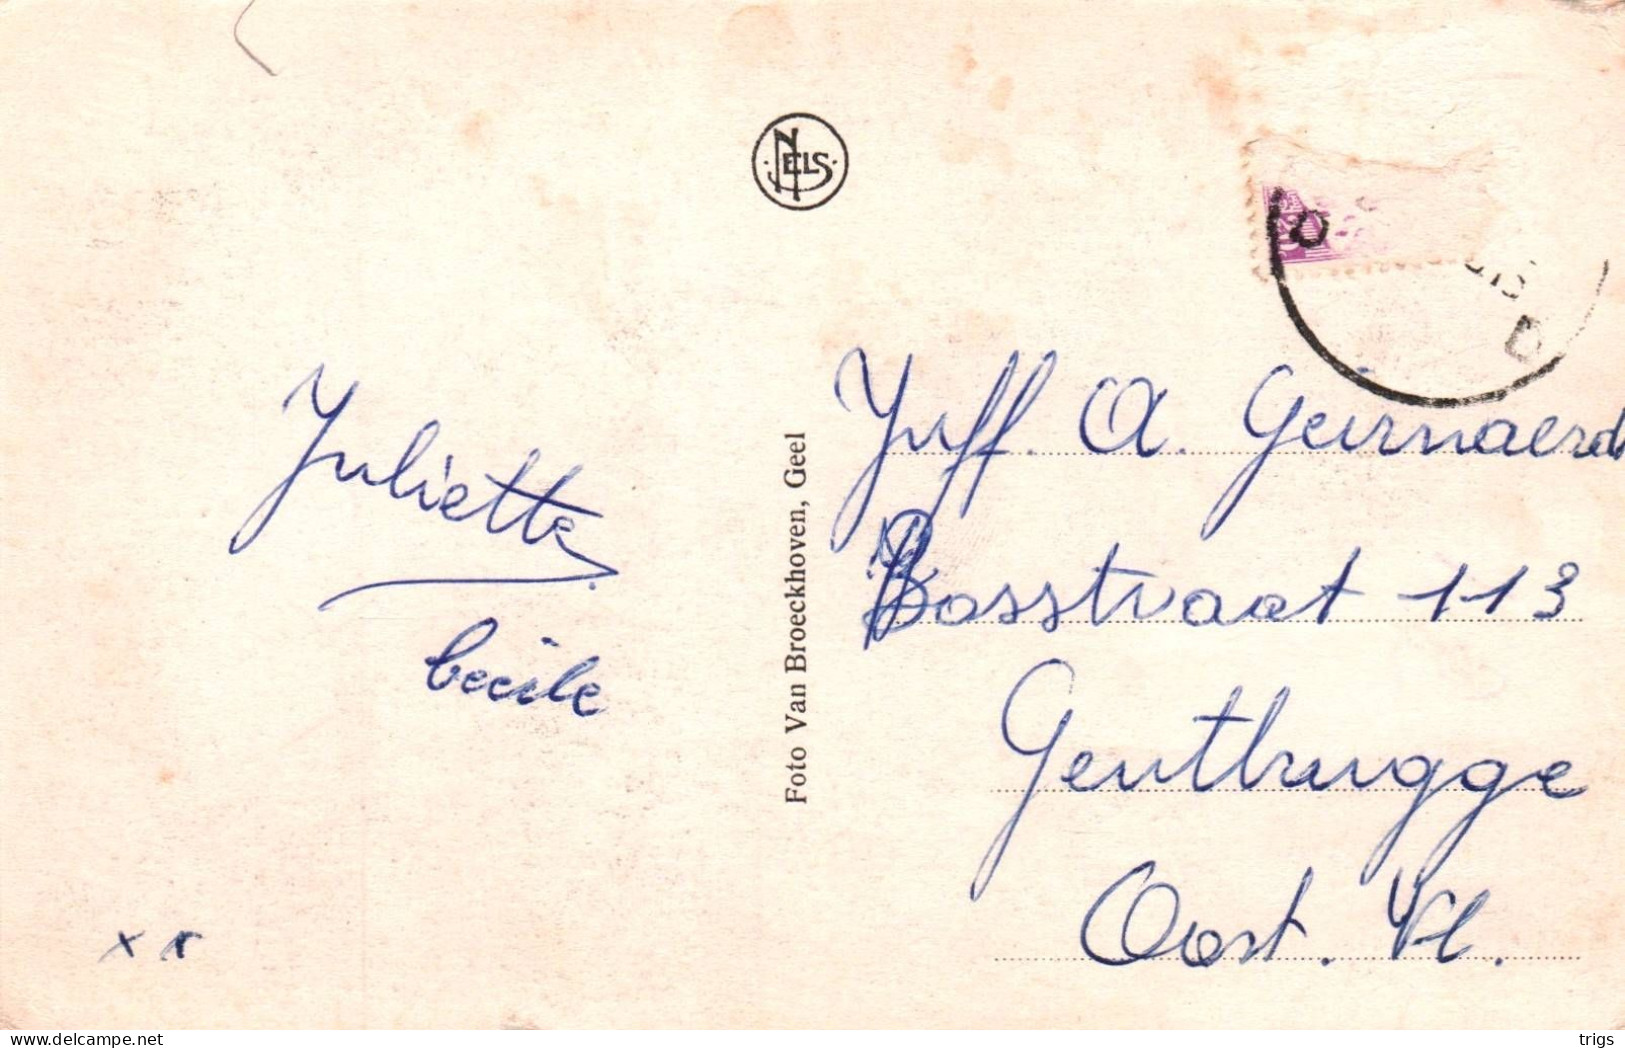 NELS
Juliette
Cecile
x x
Foto Van Broeckhoven, Geel
Juff. A. Geirnaerdt
Bosstraat 113
Gentbrugge
Oost. Vl.
delcampe.net
trigs